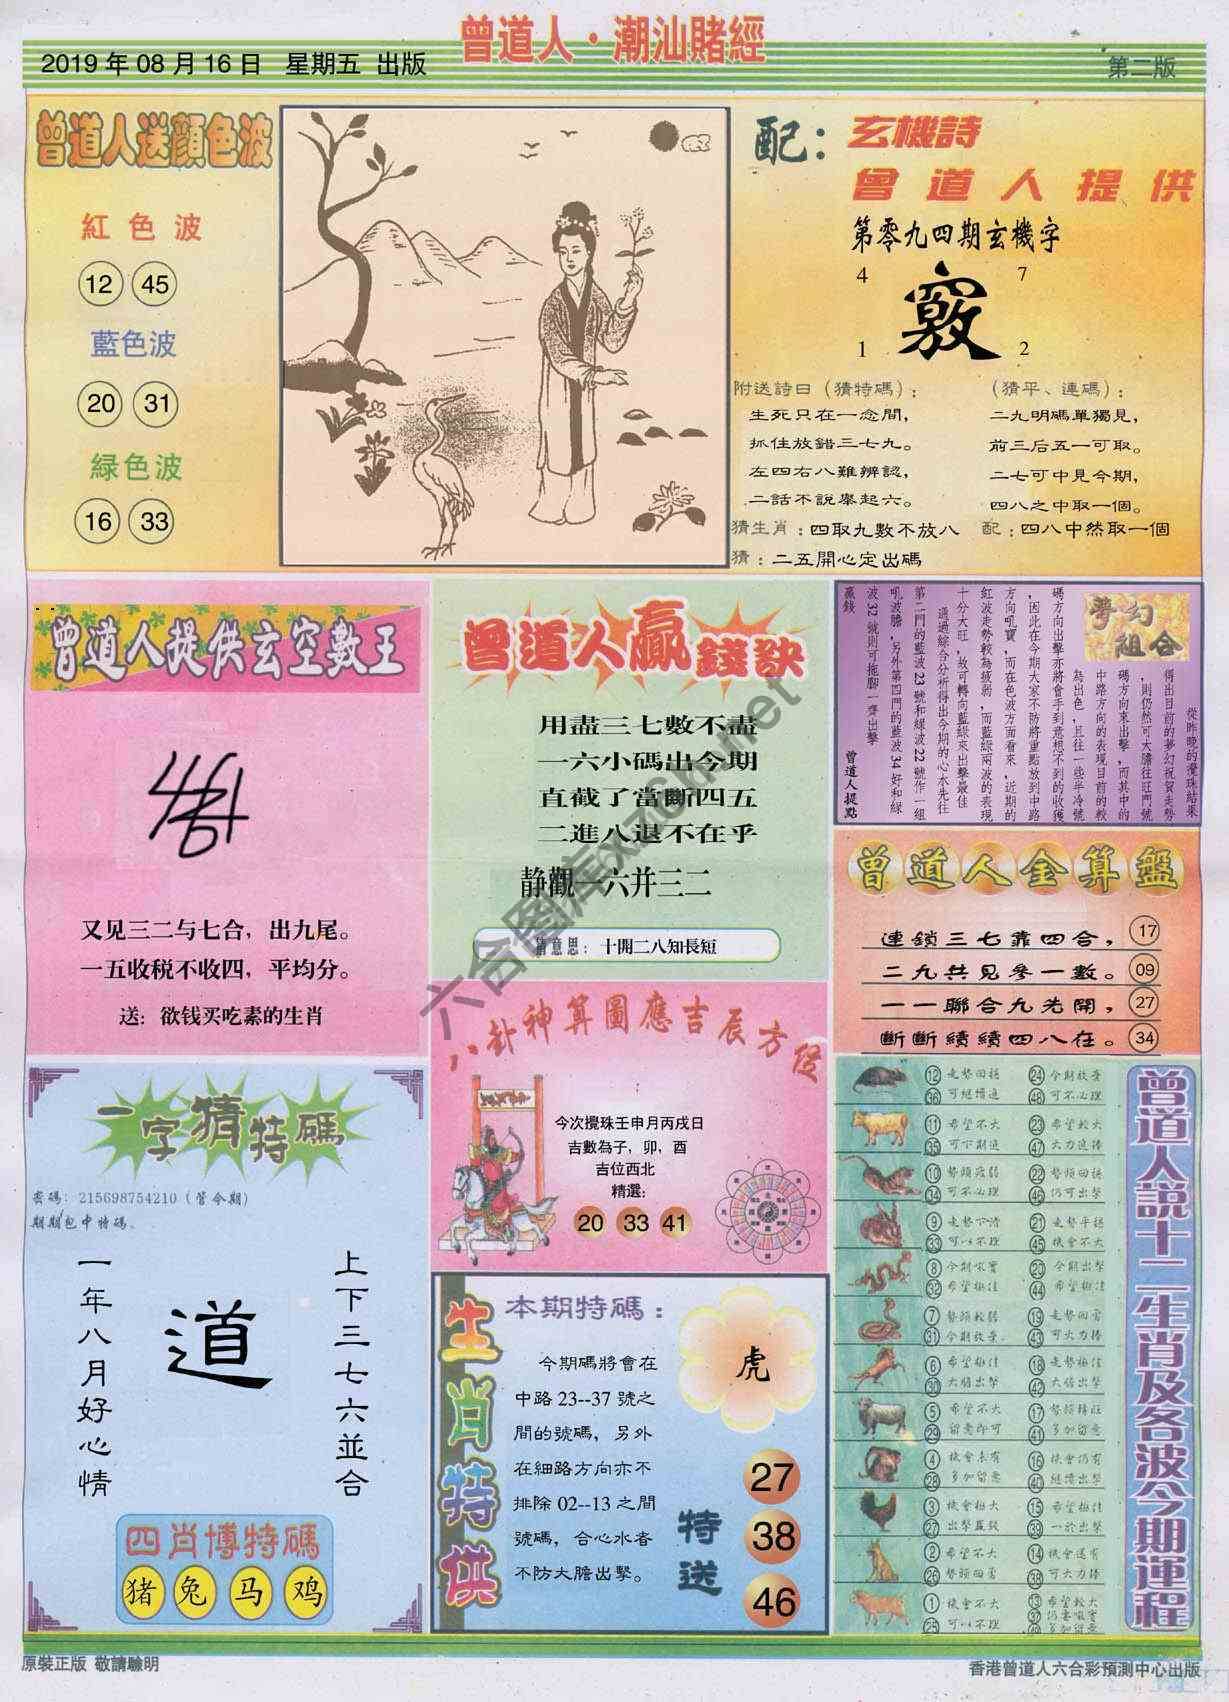 曾道人·潮汕賭經
2019 年 08 月 16 日 星期五 出版
第二版
曾道人送顏色波
紅色波
12 45
藍色波
20 31
緑色波
16 33
配：
玄機詩
曾道人提供
第零九四期玄機字
4 7
竅
1 2
附送詩曰（猜特碼）：
生死只在一念間，
抓住放錯三七九。
左四右八難辨認，
二話不說舉起六。
（猜平、連碼）：
二九明碼單獨見，
前三后五一可取。
二七可中見今期，
四八之中取一個。
猜生肖：四取九數不放八
配：四八中然取一個
猜：二五開心定出碼
曾道人提供玄空數王
又见三二与七合，出九尾。
一五收税不收四，平均分。
送：欲钱买吃素的生肖
曾道人贏錢訣
用盡三七數不盡
一六小碼出今期
直截了當斷四五
二進八退不在乎
静觀一六并三二
猜意思：十開二八知長短
夢幻組合
從昨晚的攪珠結果
得出目前的夢幻祝賀走勢
，則仍然可大膽往旺門號
碼方向來出擊，而其中的
中路方向的表現目前的較
為出色，且往一些半冷號
碼方向出擊亦將會手到意想不到的收獲
，因此在今期大家不防將重點放到中路
方向吼寶，而在色波方面看來，近期的
紅波走勢較為疲弱，而藍綠兩波的表現
十分大旺，故可轉向藍綠來出擊最佳
通過綜合分析得出今期的心水先往
第二門的藍波 23 號和綠波 22 號作一組
吼波膽，另外第四門的藍波 34 好和綠
波 32 號則可拖腳一齊出擊
贏錢
曾道人提點
曾道人金算盤
連鎖三七靠四合， 17
二九共見參一數。 09
一一聯合九先開， 27
斷斷續續四八在。 34
八卦神算圖應吉辰方位
今次攪珠壬申月丙戌日
吉數為子，卯，酉
吉位西北
精選：
20 33 41
一字猜特碼
密碼：215698754210（管令期）
期期包中特碼。
上下三七六並合
道
一年八月好心情
四肖博特碼
猪 兔 马 鸡
生肖特供
本期特碼：
今期碼將會在
中路 23--37 號之
間的號碼，另外
在細路方向亦不
排除 02--13 之間
號碼，合心水者
不防大膽出擊。
虎
特送
27
38
46
曾道人說十二生肖及各波今期運程
12 走勢回穩 24 今期放棄
36 可繼增追 48 可不必理
11 希望不大 23 希望較大
35 可下期追 47 大力追捧
10 勢頭疲弱 22 勢頭回穩
34 可不必理 46 仍可出擊
9 走勢下滑 21 走勢平穩
33 可以不理 45 機會不大
8 今期吼寶 20 今期出擊
32 希望極佳 44 希望極佳
7 勢頭較弱 19 走勢回穩
31 今期放棄 43 可大力捧
6 希望極佳 18 走勢極佳
30 大膽出擊 42 大膽出擊
5 希望不大 17 勢頭轉旺
29 留意即可 41 多加留意
4 機會未有 16 機會仍有
28 多加留意 40 繼續出擊
3 機會極大 15 希望極佳
27 出擊贏錢 39 一於出擊
2 希望不大 14 機會還有
26 勢頭回勇 38 可大力捧
1 機會不大 13 希望較大
25 可以不理 37 仍要吼寶
49 多加留意
原裝正版 敬請驗明
香港曾道人六合彩預測中心出版